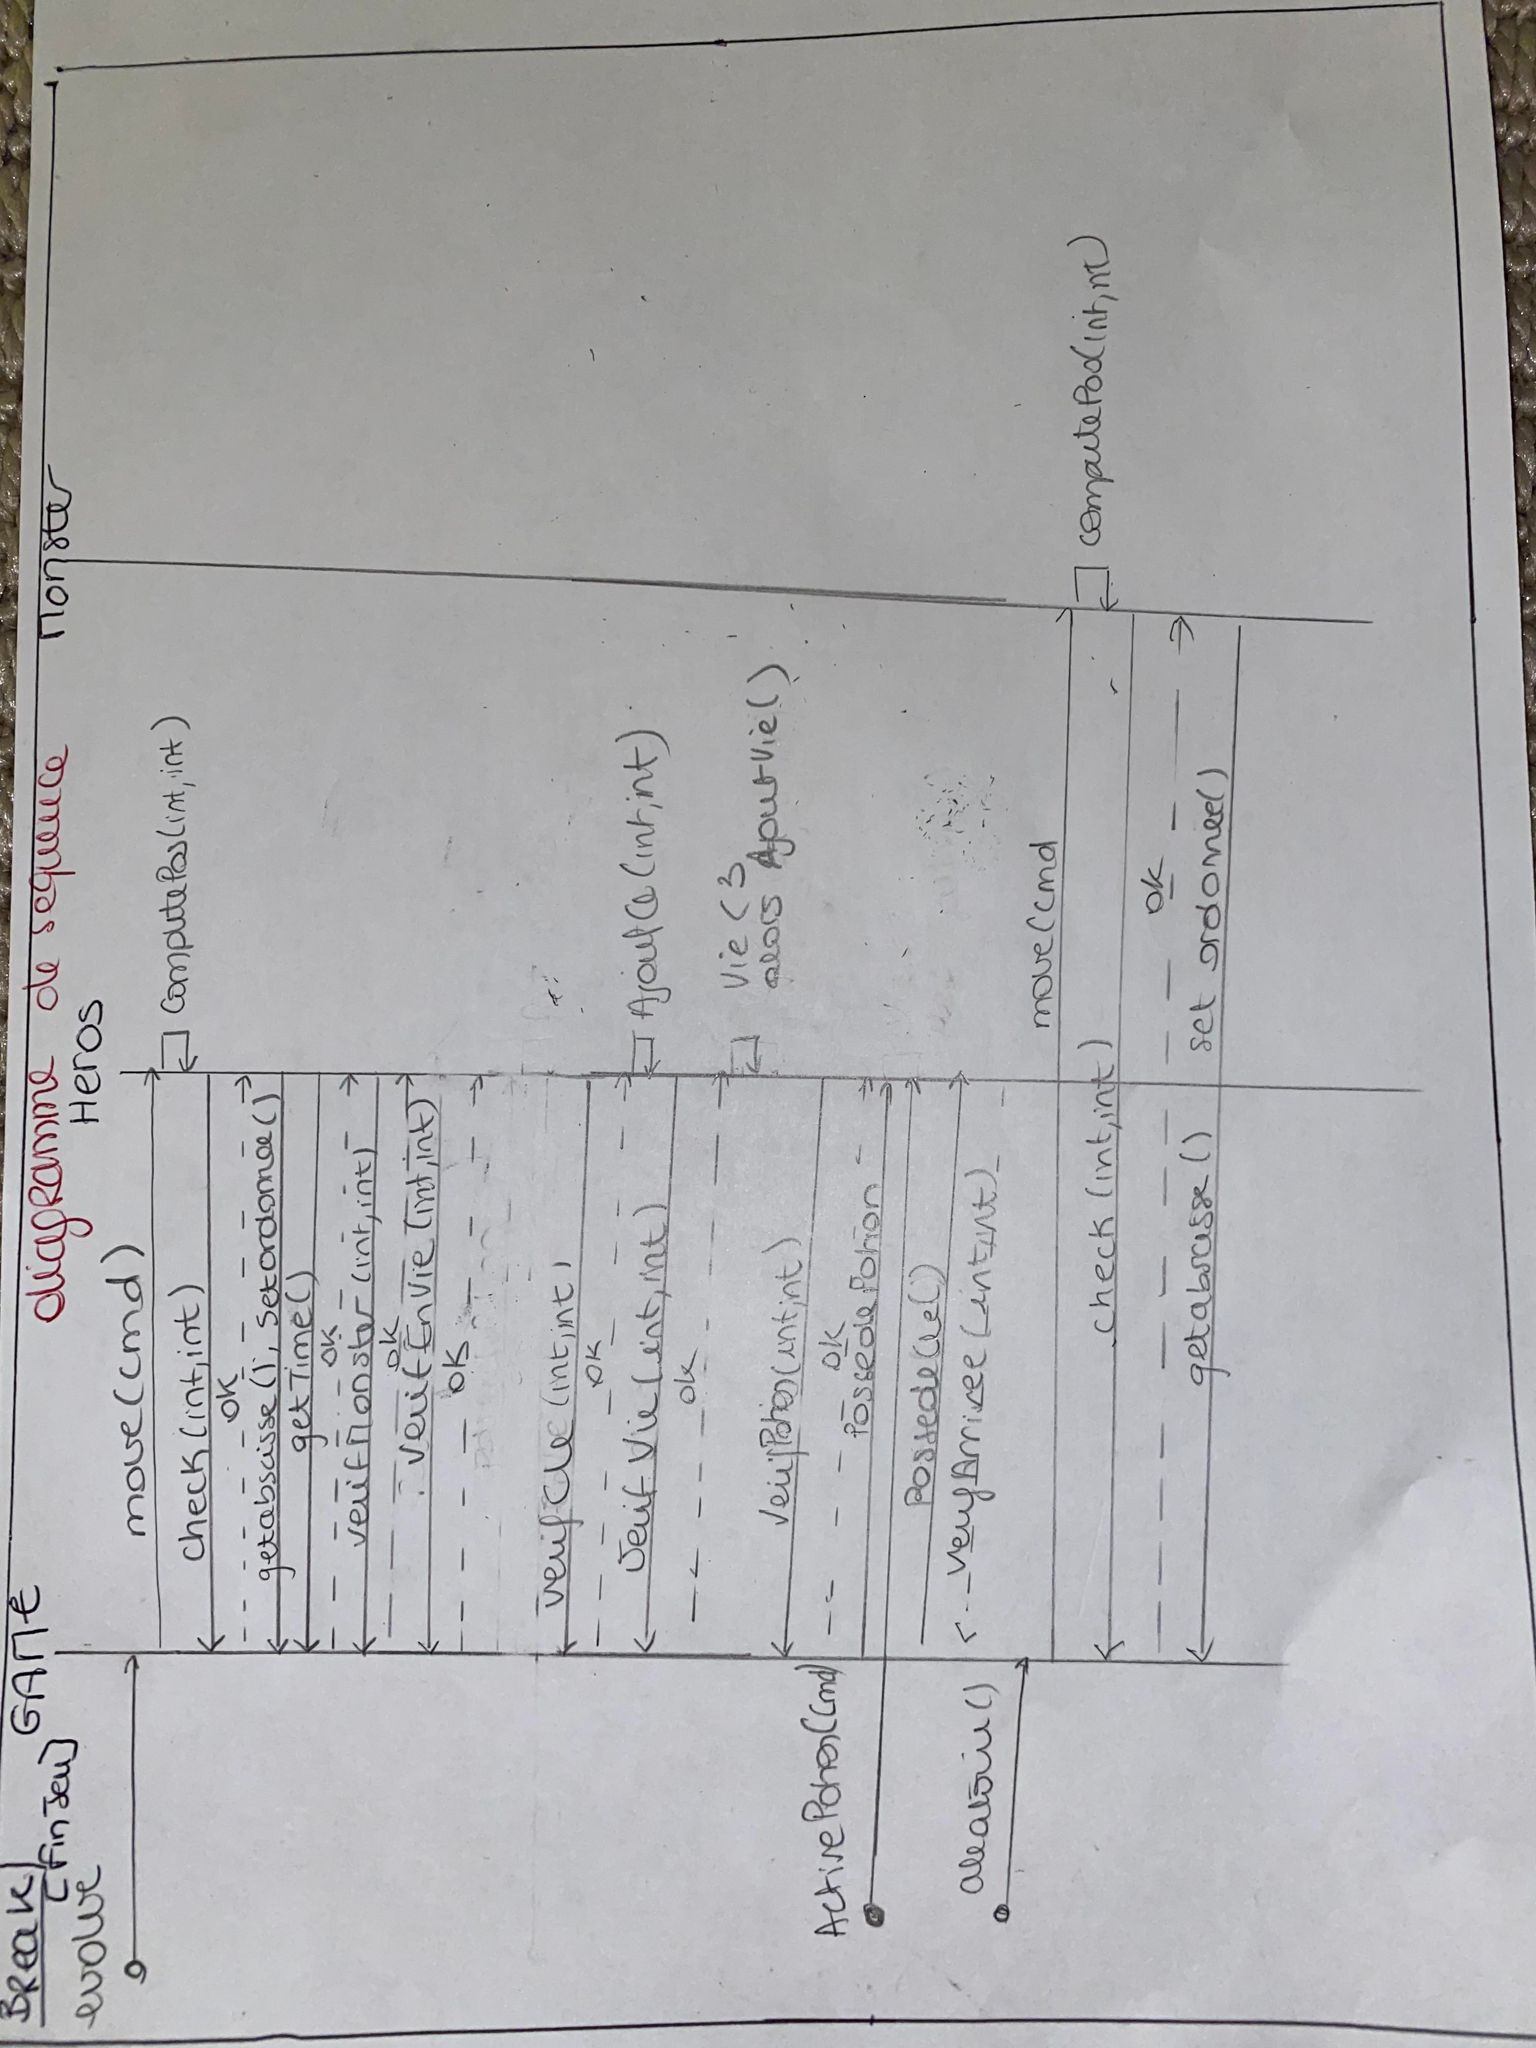 diagramme de sequence
Break
[FinJeu]
evolve
GAME
Heros
Monster
move(cmd)
computePos(int,int)
check(int,int)
OK
getabscisse(), setordonnée()
getTime()
OK
verifMonster(int,int)
OK
verifEnVie(int,int)
OK
verifCle(int,int)
OK
AjoutCle(int,int)
verifVie(int,int)
OK
Vie<3
alors AjoutVie()
verifPotion(int,int)
OK
PossedePotion
ActivePotion(Cmd)
PossedeCle()
VerifArrivee(int,int)
aleatoire()
move(cmd
computePos(int,int)
check(int,int)
OK
getabscisse() set ordonnee()